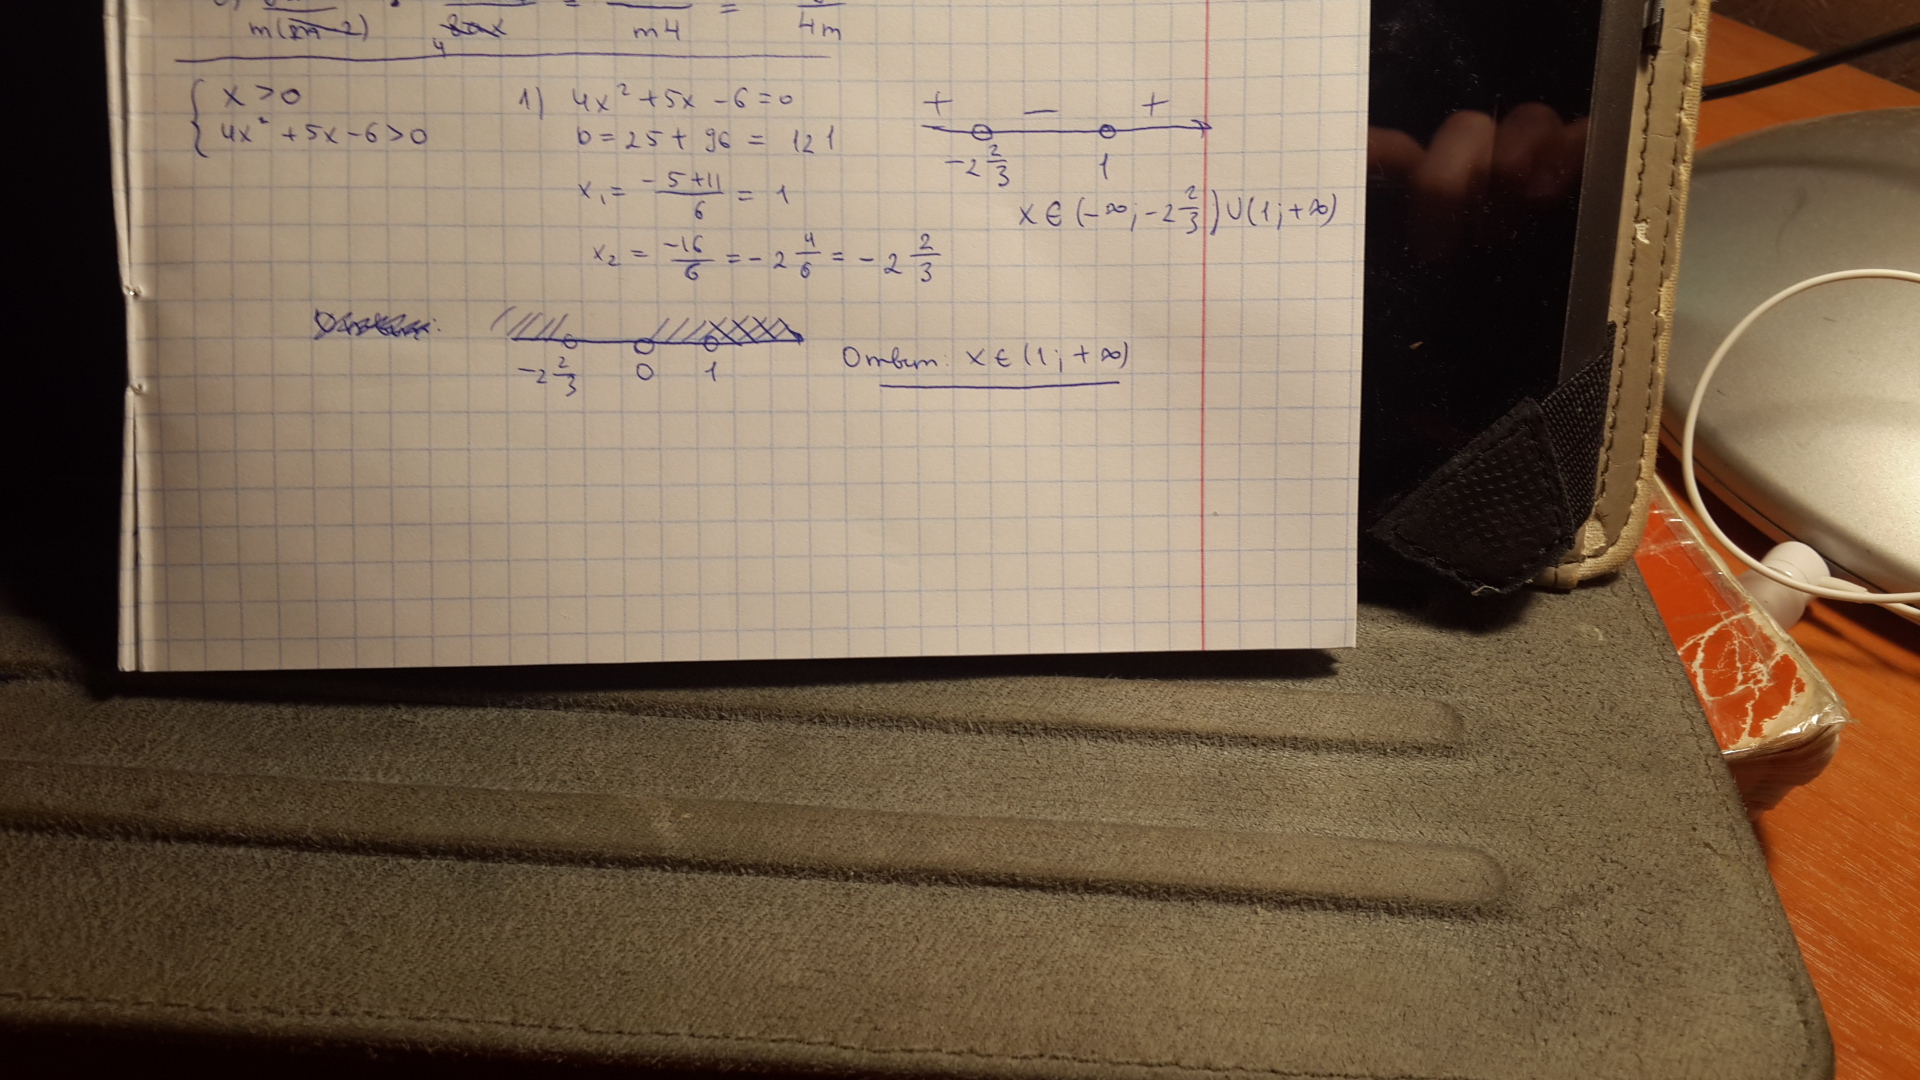 m(2m-2) 4 m4 = 4m
x>0
4x² + 5x - 6 > 0
1) 4x² + 5x - 6 = 0
D = 25 + 96 = 121
x₁ = -5+11/6 = 1
x₂ = -16/6 = -2 4/6 = -2 2/3
+ - +
-2 2/3 1
x ∈ (-∞; -2 2/3) ∪ (1; +∞)
-2 2/3 0 1
Ответ: x ∈ (1; +∞)